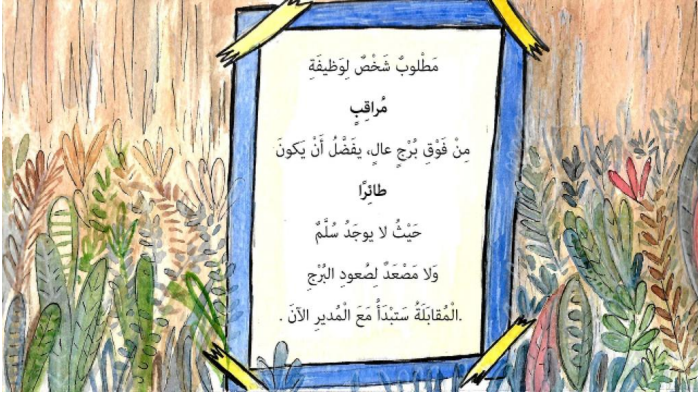 مَطْلوبٌ شَخْصٌ لِوَظيفَةِ
مُراقِبٍ
مِنْ فَوْقِ بُرْجٍ عالٍ، يفَضَّلُ أَنْ يَكونَ
طائِرًا
حَيْثُ لا يوجَدُ سُلَّمٌ
وَلا مَصْعَدٌ لِصُعودِ البُرْجِ
.الْمُقابَلَةُ سَتبْدَأُ مَعَ الْمُديرِ الآنَ .